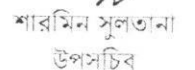 শারমিন সুলতানা
উপসচিব